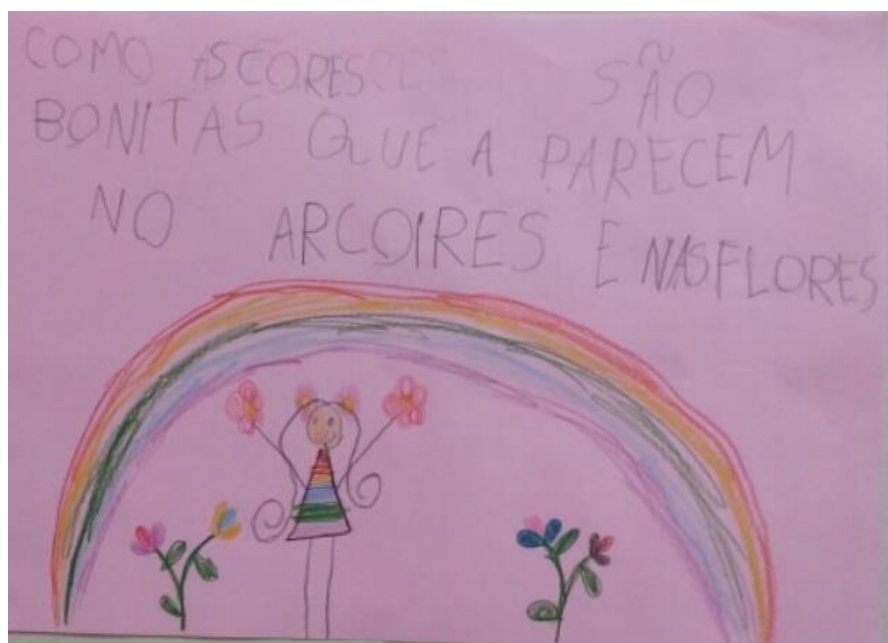 COMO AS CORES SÃO
BONITAS QUE A PARECEM
NO ARCOIRES E NAS FLORES